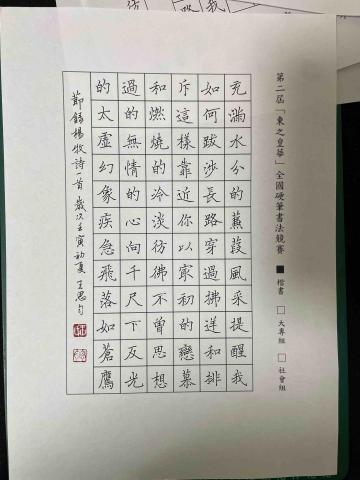 第二屆「東之皇華」全國硬筆書法競賽 ■ 楷書 □ 大專組 □ 社會組
充滿水分的蒹葭風采提醒我
如何跋涉長路穿過拂逆和排
斥這樣靠近你以最初的戀慕
和燃燒的冷淡彷彿不曾思想
過的無情的心向千尺下反光
的太虛幻象疾急飛落如蒼鷹
節錄楊牧詩一首 歲次壬寅初夏 王思勻